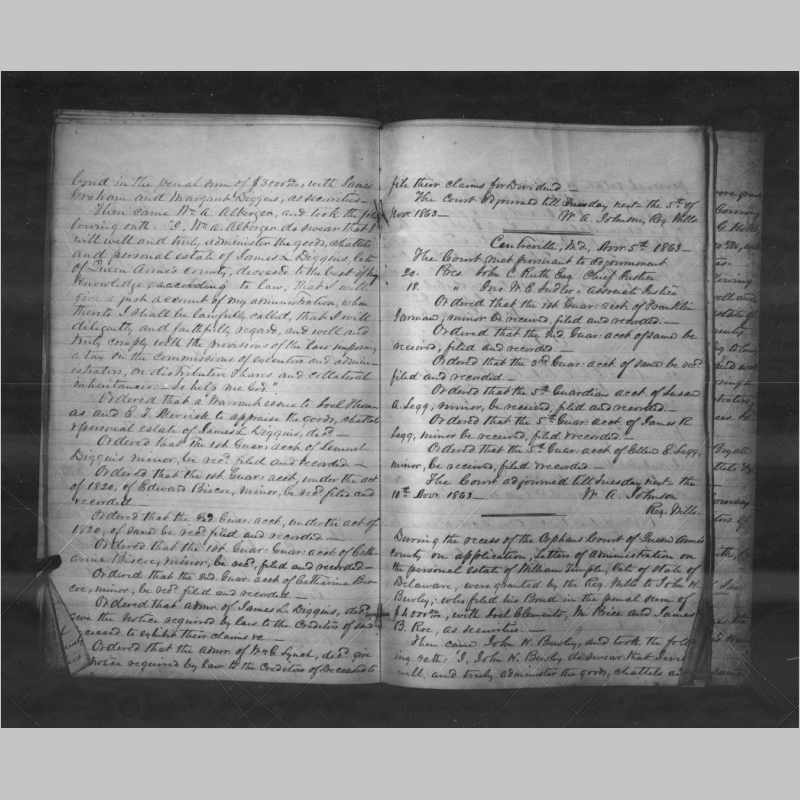 bond in the penal sum of $3000.00, with James
Graham and Margaret Diggins, as securities.
Then came Wm. A. Albergen, and took the fol
lowing oath. "I, Wm. A. Albergen do swear that I
will well and truly administer the goods, chattels
and personal estate of James L. Diggins, late
of Queen Anne's county, deceased to the best of my
Knowledge, according to law, that I will
give a just account of my administration, when
thereto I shall be lawfully called, that I will
diligently and faithfully regard, and well and
truly comply with the provisions of the law imposing
a tax on the commissions of executors and admin-
istrators, on distributive shares and collateral
inheritances. So help me God."
Ordered that a Warrant issue to Joel Thom-
as and E. T. to appraise the goods, chattels
& personal estate of James L. Diggins, decd.
Ordered that the 1st Guar: acct of Lemuel
Diggins minor, be recd. filed and recorded —
Ordered that the 1st Guar: acct, under the act
of 1820, of Edward Biscoe, minor, be recd filed and
recorded —
Ordered that the 2nd Guar. acct, under the act of
1820, of same be recd. filed and recorded —
Ordered that the 1st Guar: acct of Cath
arine Biscoe, minor, be recd. filed and recorded —
Ordered that the 2nd Guar: acct of Catherine Bis-
coe, minor, be recd filed and recorded —
Ordered that admr. of James L. Diggins, decd.,
give the Notice required by law to the Creditors of said
deceased to exhibit their claims &c —
Ordered that the admr. of Wm. C. Lynch, decd. give
notice required by law to the Creditors of Deceased to
file their claims for Dividend —
The Court adjourned till Tuesday next the 5th of
Nov. 1863 —
W. A. Johnson, Reg. Wills
Centreville, Md., Nov. 5th 1863 —
The Court met pursuant to adjournment
20. Pres John C. Ruth Esq Chief Justice
18. " Jno. W. E. Sudler, associate Justice
Ordered that the 1st Guar: acct of Franklin
Jarman, minor be received, filed and recorded. —
Ordered that the 2nd Guar. acct of same be
received, filed and recorded. —
Ordered that the 3rd Guar: acct of same be recd
filed and recorded —
Ordered that the 5th Guardian acct. of Susan
A. Legg, minor, be received, filed and recorded. —
Ordered that the 5th Guar: acct. of James R.
Legg, minor be received, filed & recorded. —
Ordered that the 5th Guar. acct of Ellen E. Legg,
minor, be received, filed & recorded —
The Court adjourned till Tuesday next the
10th Nov. 1863 —
W. A. Johnson
Reg. Wills
During the recess of the Orphans Court of Queen Annes
county on application, Letters of administration on
the personal estate of William Temple, late of State of
Delaware, were granted by the Reg. Wills to John H.
Bewley; who filed his Bond in the penal sum of
$4,000.00, with Joel Clements, M. Price and James
B. Roe, as securities. —
Then came John H. Bewley, and took the follow
ing oath: I, John H. Bewley do swear that I will
well, and truly administer the goods, chattels and